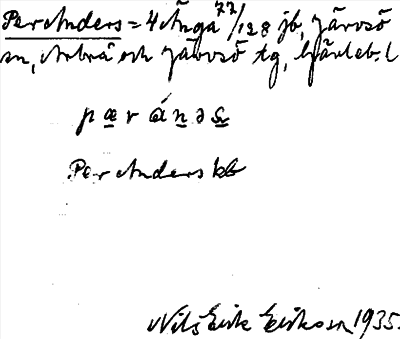 Per Anders = 4 Änga 77/128 jb, Järvsö
sn, Arbrå och Järvsö tg, Gävleb. l
pæránəs
Per Anders kb
Nils Eric Eriksson 1935.